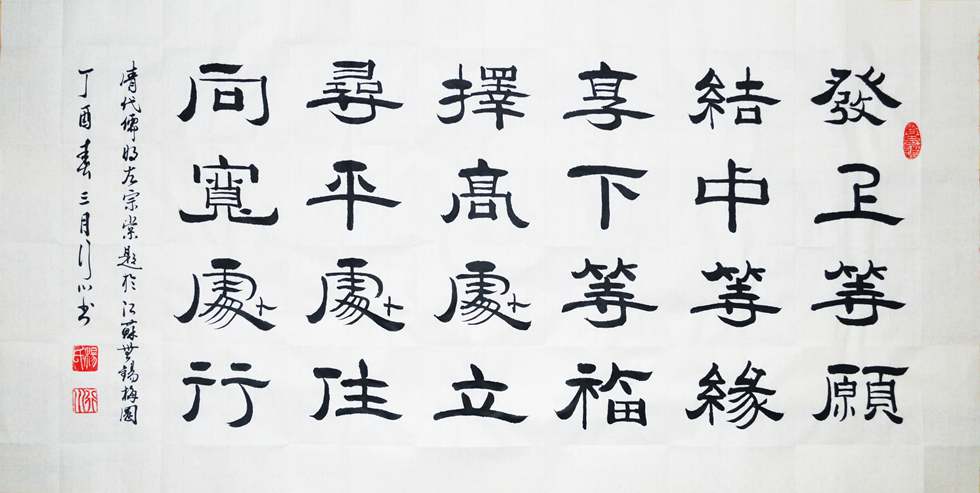 發上等願
結中等緣
享下等福
擇高處立
尋平處住
向寬處行
清代儒將左宗棠題於江蘇無錫梅園
丁酉春三月行心书